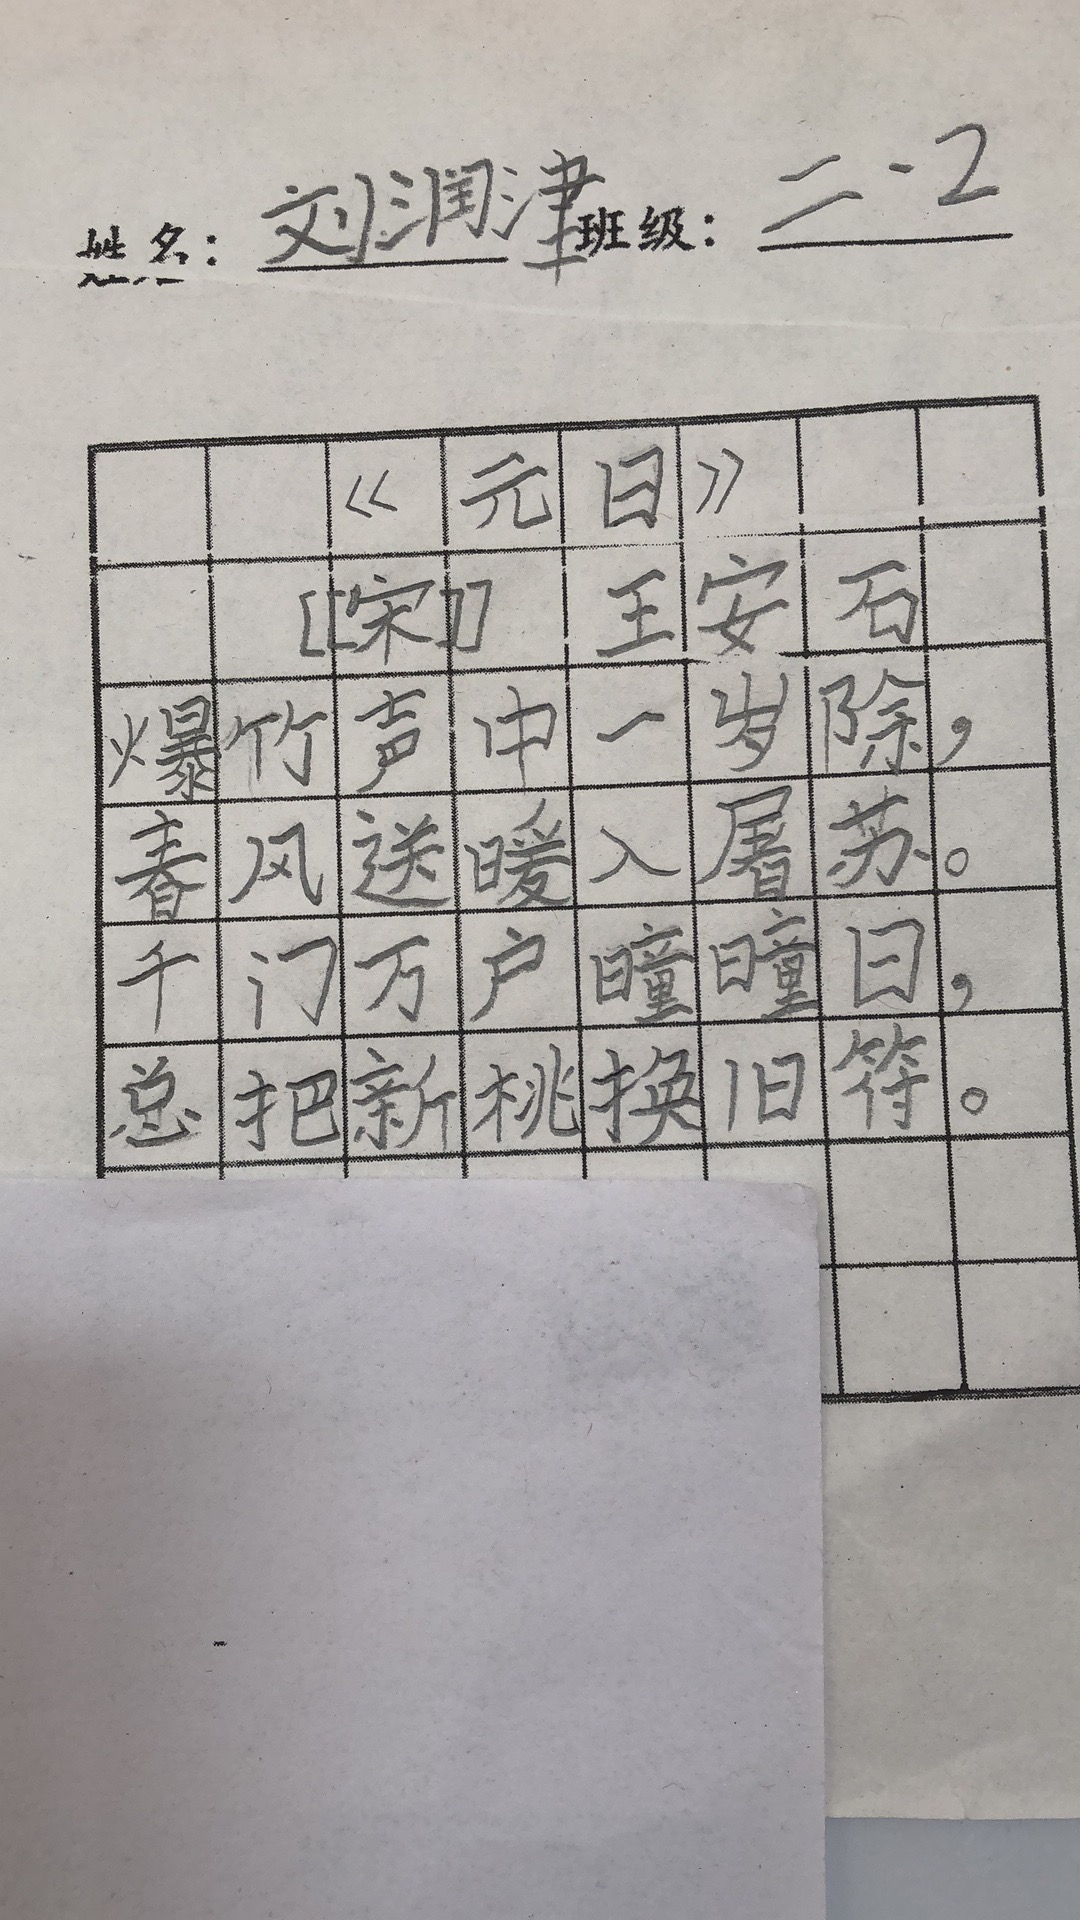 姓名：刘润津 班级：二·2
《元日》
[[宋]] 王安石
爆竹声中一岁除，
春风送暖入屠苏。
千门万户曈曈日，
总把新桃换旧符。